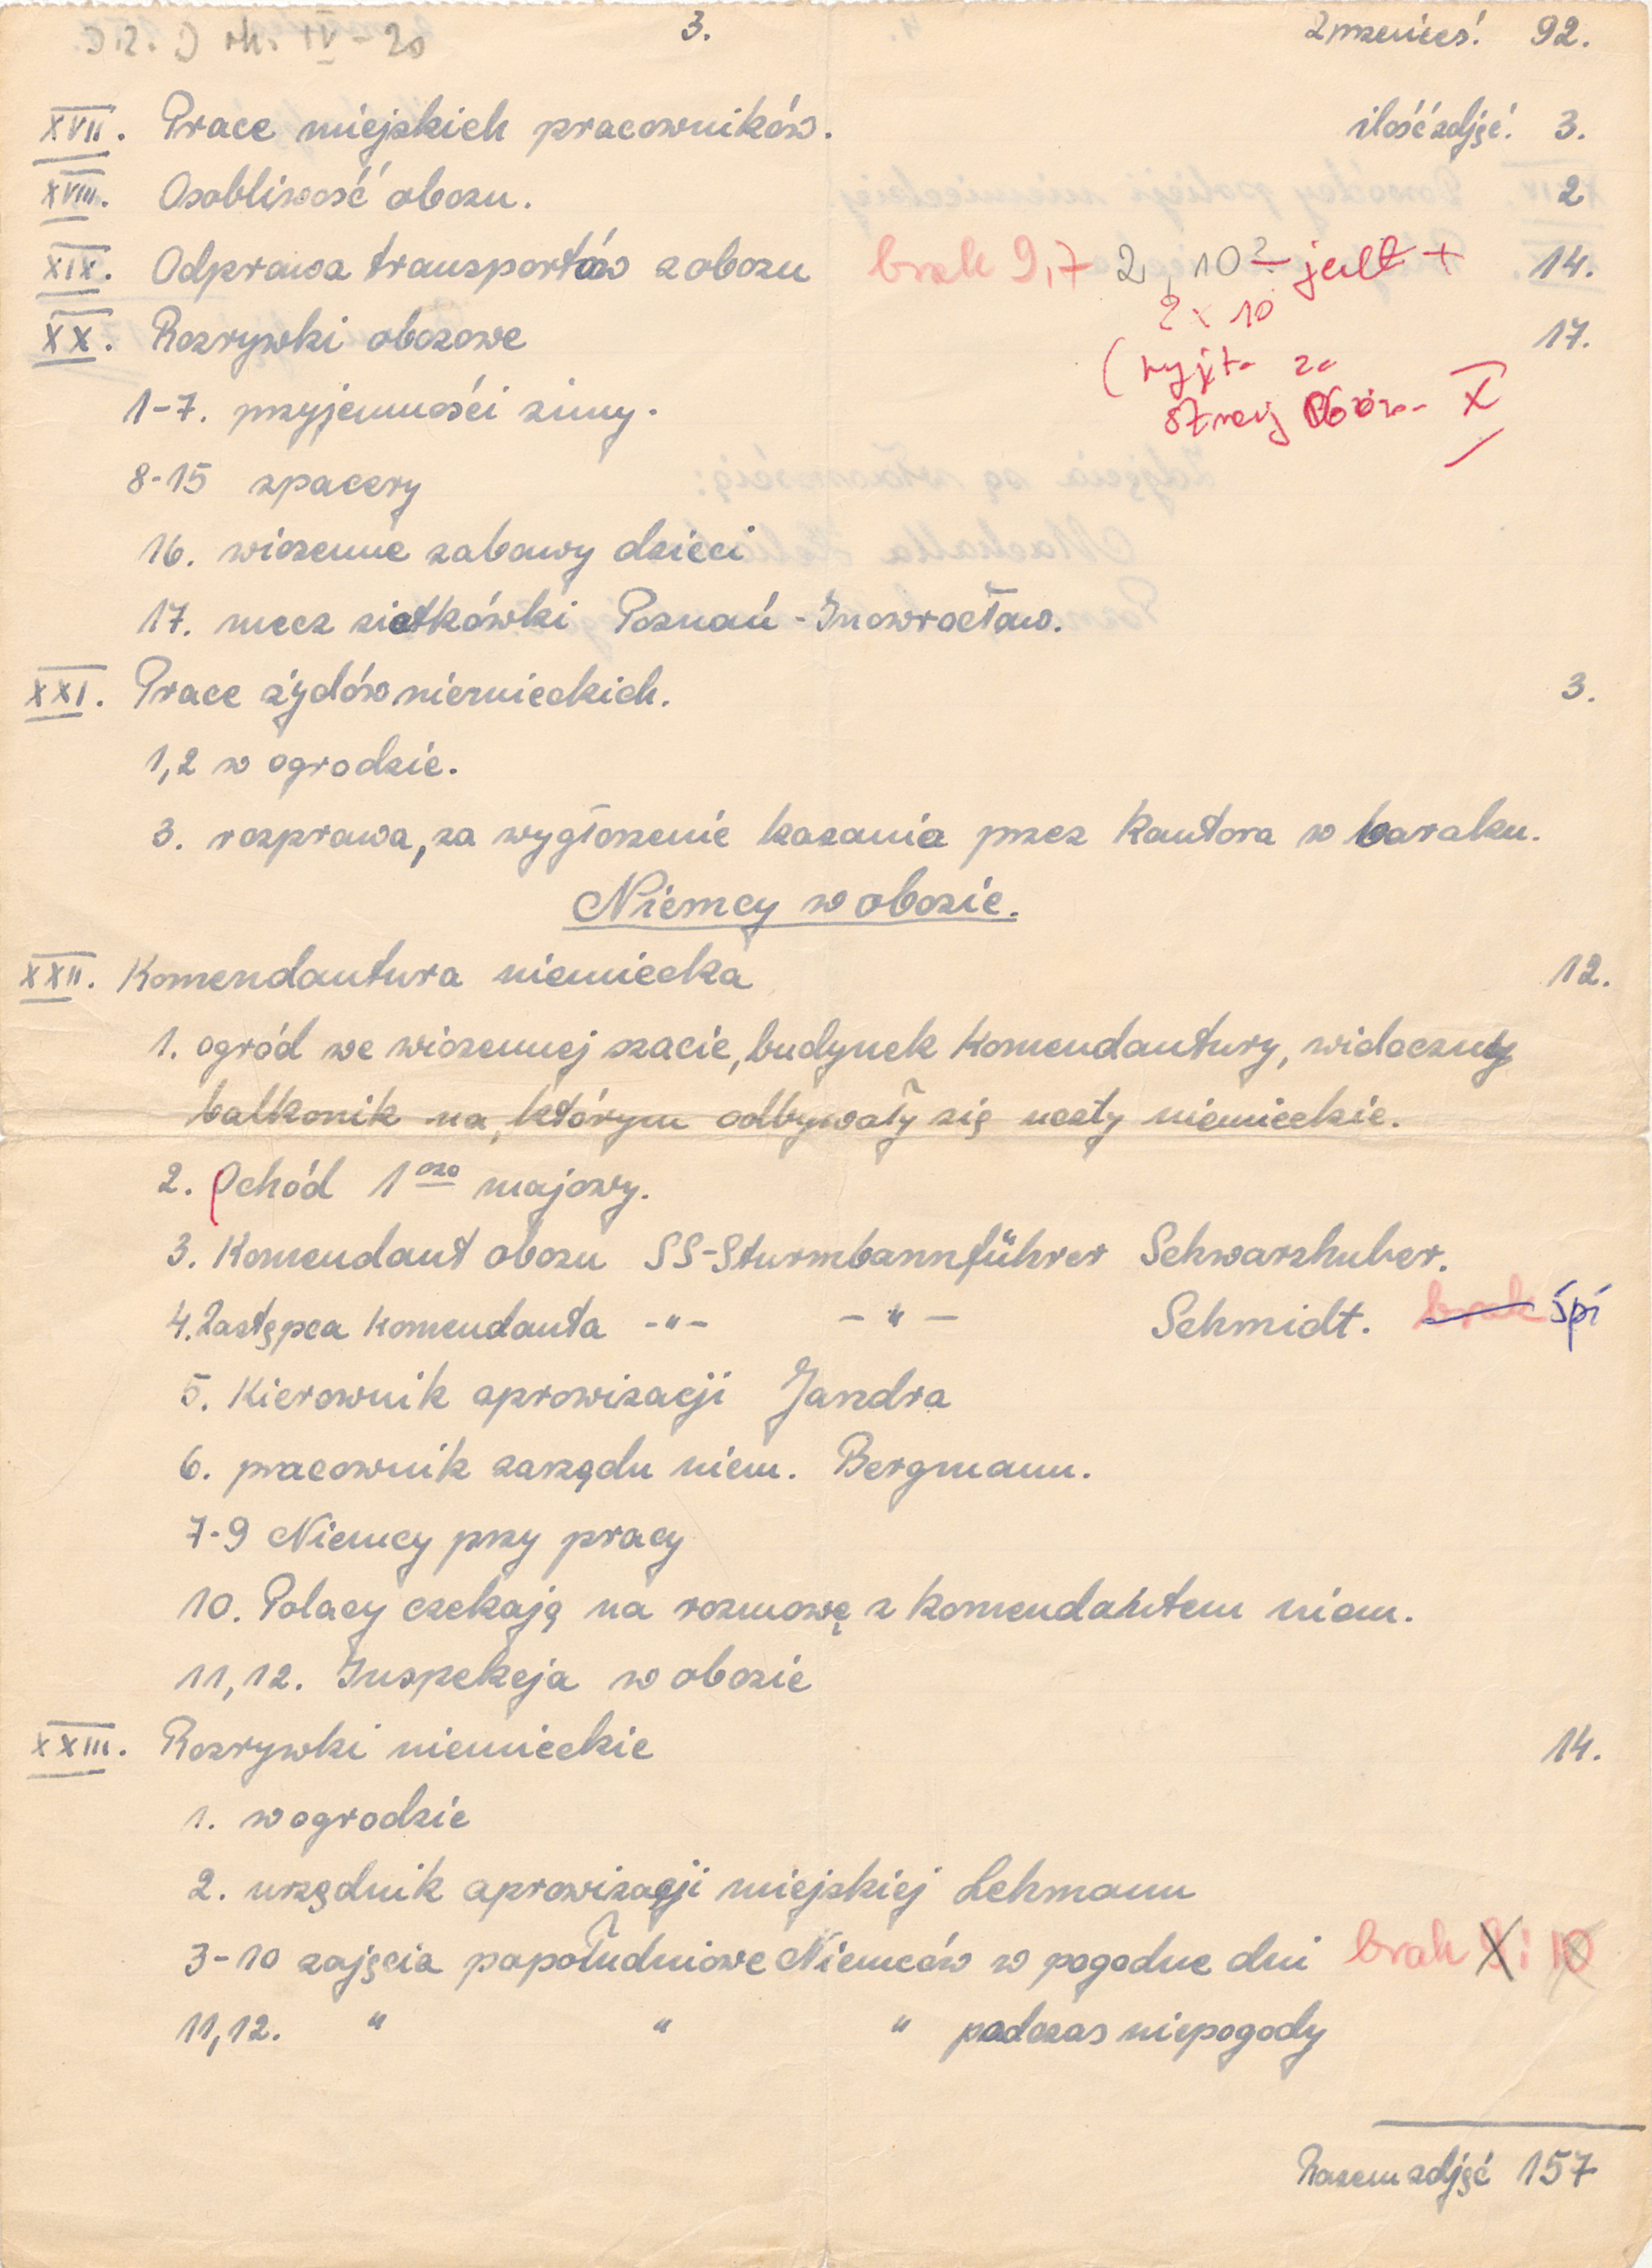 3.
Zprzenieś! 92.
XVII. Prace miejskich pracowników. ilość zdjęć. 3.
XVIII. Osobliwość obozu. 2
XIX. Odprawa transportów z obozu brak 9,7 2, 10? jest + 14.
2 x 10
XX. Rozrywki obozowe 17.
(wyjęta za
X
1-7. przyjemności zimy.
8-15 spacery
16. wiosenne zabawy dzieci
17. mecz siatkówki Poznań - Inowrocław.
XXI. Prace żydów niemieckich. 3.
1,2 w ogrodzie.
3. rozprawa, za wygłoszenie kazania przez kantora w baraku.
Niemcy w obozie.
XXII. Komendantura niemiecka 12.
1. ogród we wiosennej szacie, budynek komendantury, widoczny
balkonik na, którym odbywały się uczty niemieckie.
2. pochód 1szo majowy.
3. Komendant obozu SS-Sturmbannführer Schwarzhuber.
4. Zastępca komendanta -"- -"- Schmidt. brak śpi
5. Kierownik aprowizacji Jandra
6. pracownik zarządu niem. Bergmann.
7-9 Niemcy przy pracy
10. Polacy czekają na rozmowę z komendantem niem.
11,12. Inspekcja w obozie
XXIII. Rozrywki niemieckie 14.
1. w ogrodzie
2. urzędnik aprowizacji miejskiej Lehmann
3-10 zajęcia popołudniowe Niemców w pogodne dni brak 8 i 10
11,12. " " " podczas niepogody
Razem zdjęć 157